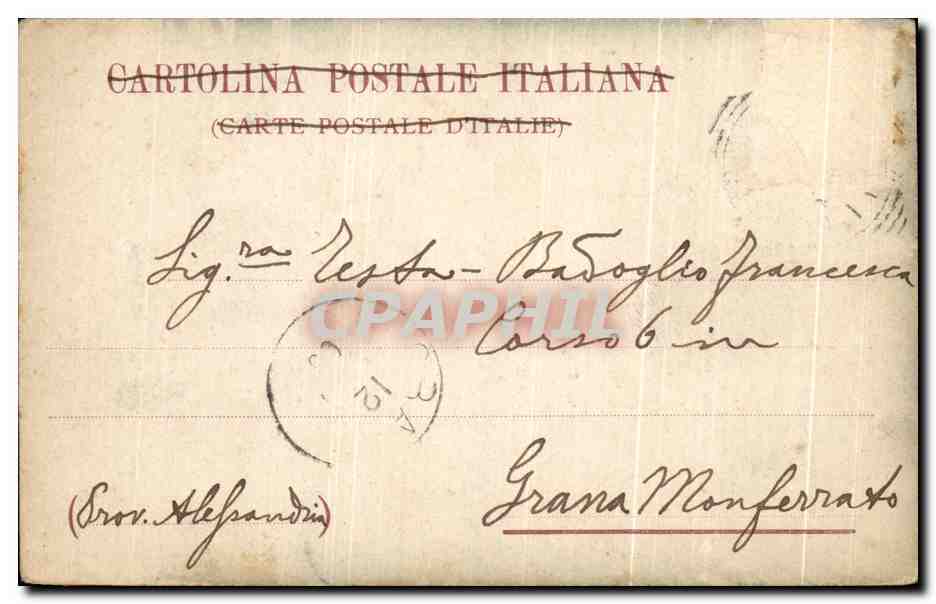 CARTOLINA POSTALE ITALIANA
(CARTE POSTALE D'ITALIE)
Sig.ra Testa - Badoglio Francesca
CPAPHIL
Corso 6 in
12
Grana Monferrato
(Prov. Alessandria)